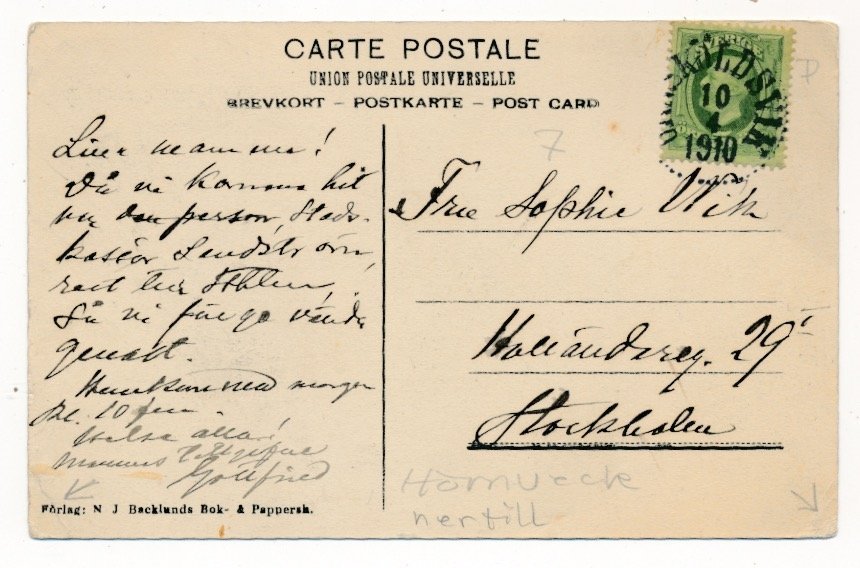 CARTE POSTALE
UNION POSTALE UNIVERSELLE
BREVKORT – POSTKARTE – POST CARD
SVERIGE
ÖRNSKÖLDSVIK
10
4
1910
7
P
mamma!
Då vi komma hit
var den person, Stads-
kassör Sandström,
rest till Sthlm,
Så vi få ge vända
genast.
Hemkomma morgon
kl. 10 fm.
Helsa alla!
Mammas tillgifne
Gottfried
Fru Sophie Wik
Holländareg. 29
Stockholm
Hörnveck
nertill
Förlag: N J Backlunds Bok- & Pappersh.